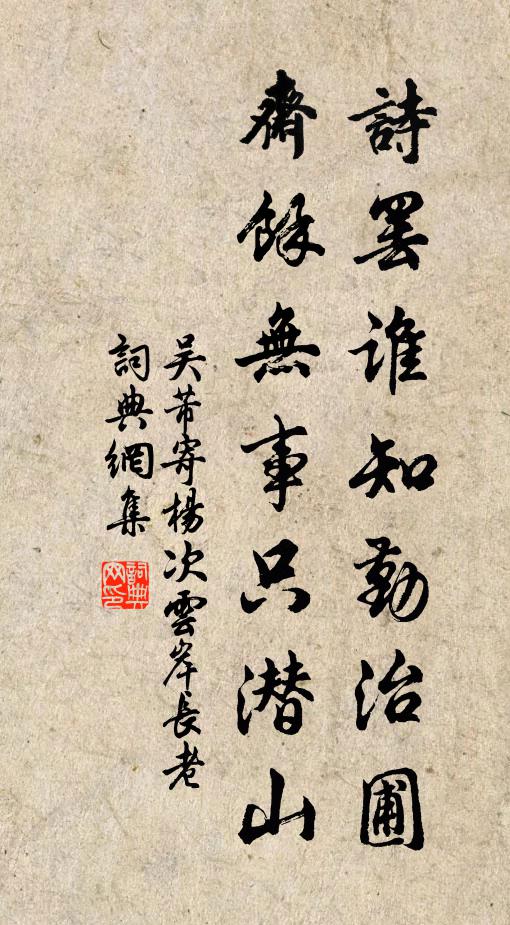 詩罢誰知勤治圃
齋餘無事只潜山
吴芾寄楊次雲岸長老
詞典網集
詞典网印